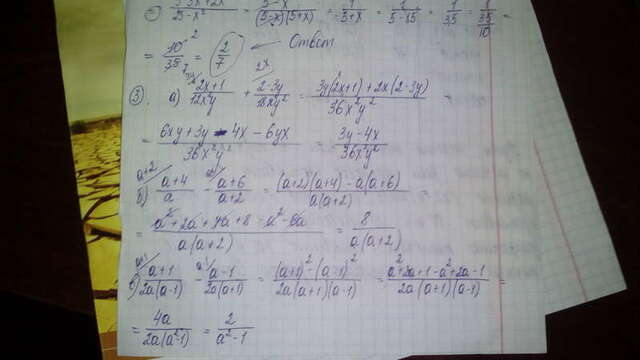 5-3x+2x/25-x² = 5-x/(5-x)(5+x) = 1/5+x = 1/5-1,5 = 1/3,5 = 1/(35/10) =
= 10 2/35 7 = (2/7) ← Ответ
③. а) 3y/ 2x+1/12x²y + 2x/ 2-3y/18xy² = 3y(2x+1)+2x(2-3y)/36x²y² =
= 6xy+3y-4x-6yx/36x²y² = 3y-4x/36x²y²
б) a+2/ a+4/a - a/ a+6/a+2 = (a+2)(a+4)-a(a+6)/a(a+2) =
= a²+2a+4a+8-a²-6a/a(a+2) = 8/a(a+2)
в) a+1/ a+1/2a(a-1) - a-1/ a-1/2a(a+1) = (a+1)²-(a-1)²/2a(a+1)(a-1) = a²+2a+1-a²+2a-1/2a(a+1)(a-1) =
= 4a/2a(a²-1) = 2/a²-1